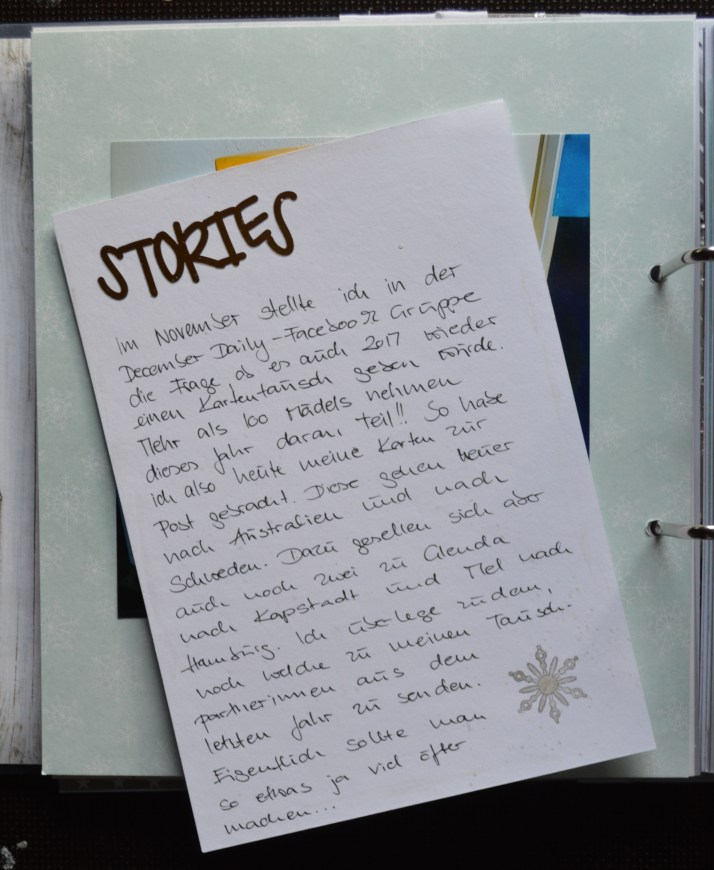 STORIES
Im November stellte ich in der
December Daily-Facebook Gruppe
die Frage ob es auch 2017 wieder
einen Kartentausch geben würde.
Mehr als 100 Mädels nehmen
dieses Jahr daran teil!! So habe
ich also heute meine Karten zur
Post gebracht. Diese gehen heuer
nach Australien und nach
Schweden. Dazu gesellen sich aber
auch noch zwei zu Glenda
nach Kapstadt und Mel nach
Hamburg. Ich überlege zudem,
noch welche zu meinen Tausch-
partnerinnen aus dem
letzten Jahr zu senden.
Eigentlich sollte man
so etwas ja viel öfter
machen...